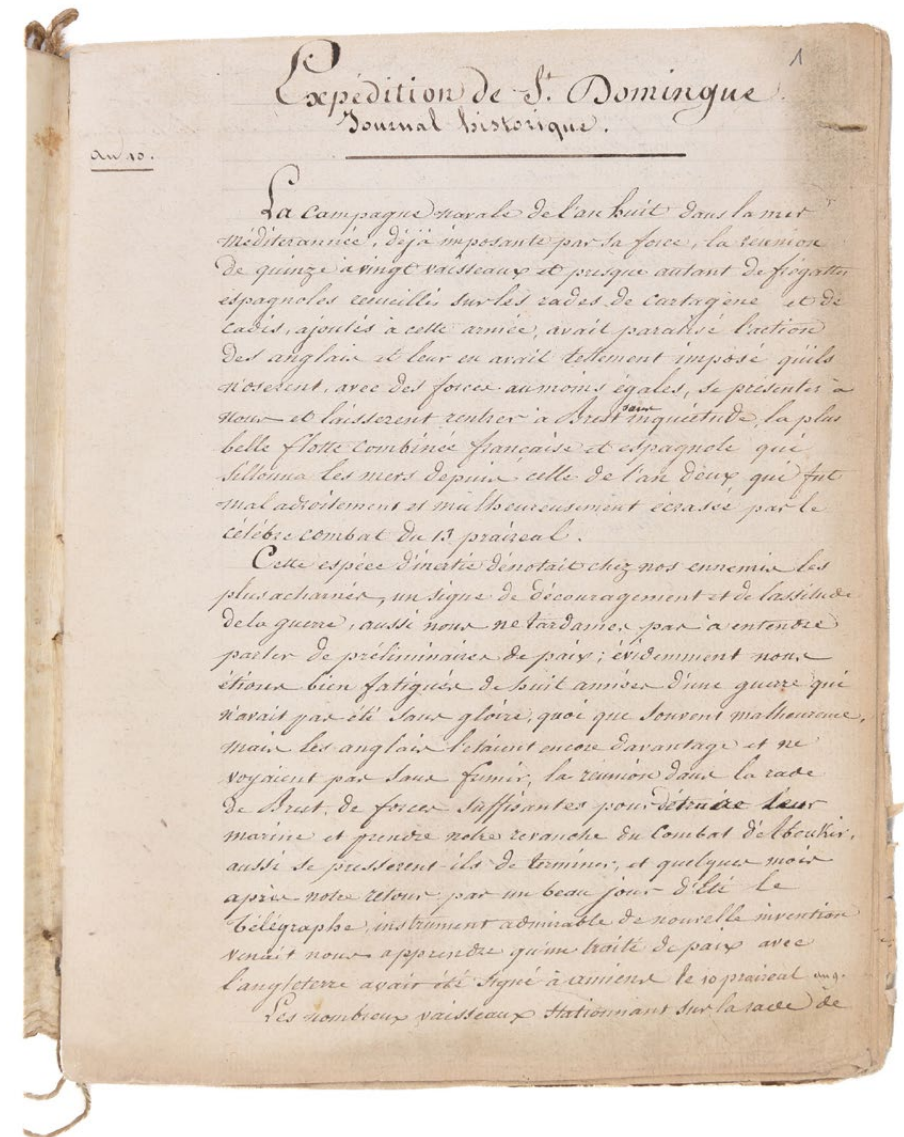 1
Expédition de St. Domingue.
Journal historique.
an 10.
La campagne navale de l'an huit dans la mer
Méditerannée, déjà imposante par sa force, la réunion
de quinze à vingt vaisseaux et presque autant de frégattes
espagnoles recueillis sur les rades de Cartagène et de
Cadis, ajoutés à cette armée, avait paralisé l'action
des anglais et leur en avait tellement imposé qu'ils
n'oserent, avec des forces au moins égales, se présenter à
nous et laisserent rentrer à Brest sans inquiétude, la plus
belle flotte combinée française et espagnole qui
sillonna les mers depuis celle de l'an deux qui fut
mal adroitement et malheureusement écrasée par le
célébre combat du 13 praireal.
Cette espéce d'inertie dénotait chez nos ennemis les
plus acharnés, un signe de découragement et de lassitude
de la guerre, aussi nous ne tardames pas à entendre
parler de préliminaires de paix; évidemment nous
étions bien fatigués de huit années d'une guerre qui
n'avait pas été sans gloire, quoi que souvent malheureuse,
mais les anglais l'étaient encore davantage et ne
voyaient pas sans frémir, la réunion dans la rade
de Brest, de forces suffisantes pour détruire leur
marine et prendre notre revanche du Combat d'Aboukir,
aussi se presserent-ils de terminer, et quelques mois
après notre retour par un beau jour d'Eté le
télégraphe, instrument admirable de nouvelle invention
venait nous apprendre qu'un traité de paix avec
l'angleterre avait été signé à amiens le 10 praireal an 9.
Les nombreux vaisseaux stationnant sur la rade de